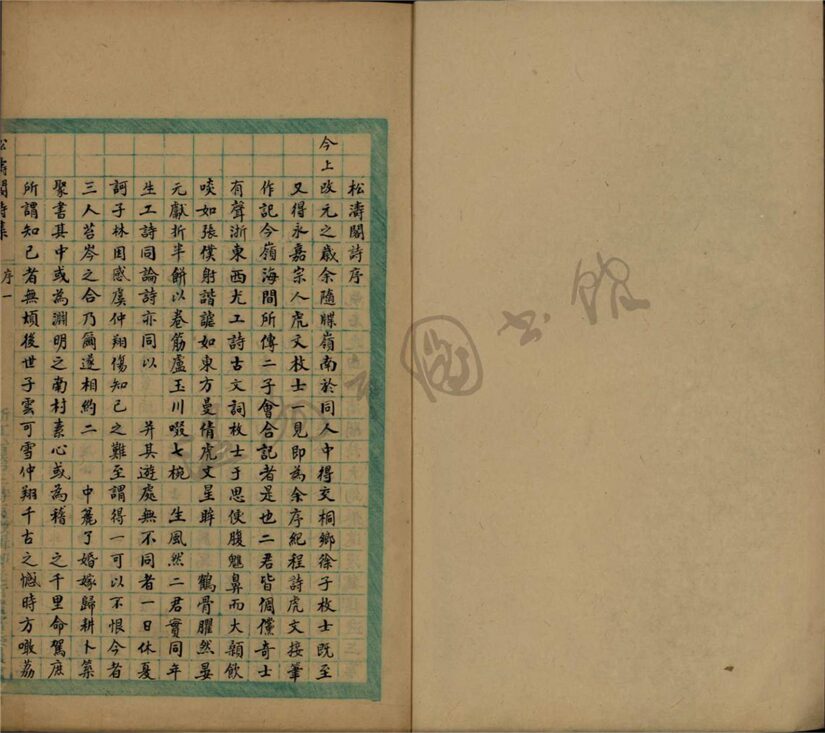 松濤閣詩序
今上改元之歲余隨牒嶺南於同人中得交桐鄉徐子枚士既至
又得永嘉宗人虎文枚士一見即為余序紀程詩虎文接筆
作記今嶺海間所傳二子會合記者是也二君皆倜儻奇士
有聲浙東西尤工詩古文詞枚士于思便腹魋鼻而大顙飲
啖如張僕射諧謔如東方曼倩虎文星眸 鶴骨臞然晏
元獻折半餅以卷筋盧玉川啜七椀 生風然二君實同年
生工詩同論詩亦同以 并其遊處無不同者一日休夏
訶子林因感虞仲翔傷知己之難至謂得一可以不恨今者
三人苔岑之合乃爾遂相約二 中麓了婚嫁歸耕卜築
聚書其中或為淵明之南村素心或為嵇 之千里命駕庶
所謂知己者無煩後世子雲可雪仲翔千古之憾時方噉荔
松濤閣詩集 序 一